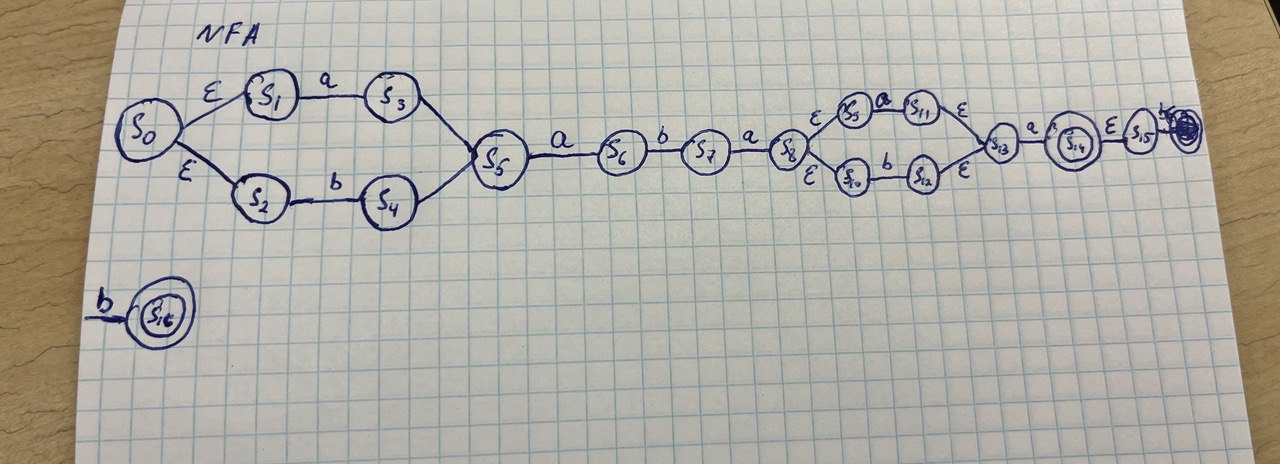 NFA
S0 ε S1 a S3
ε S2 b S4
S5 a S6 b S7 a S8
ε S9 a S11 ε
ε S10 b S12 ε
S13 a S14 ε S15
b S16